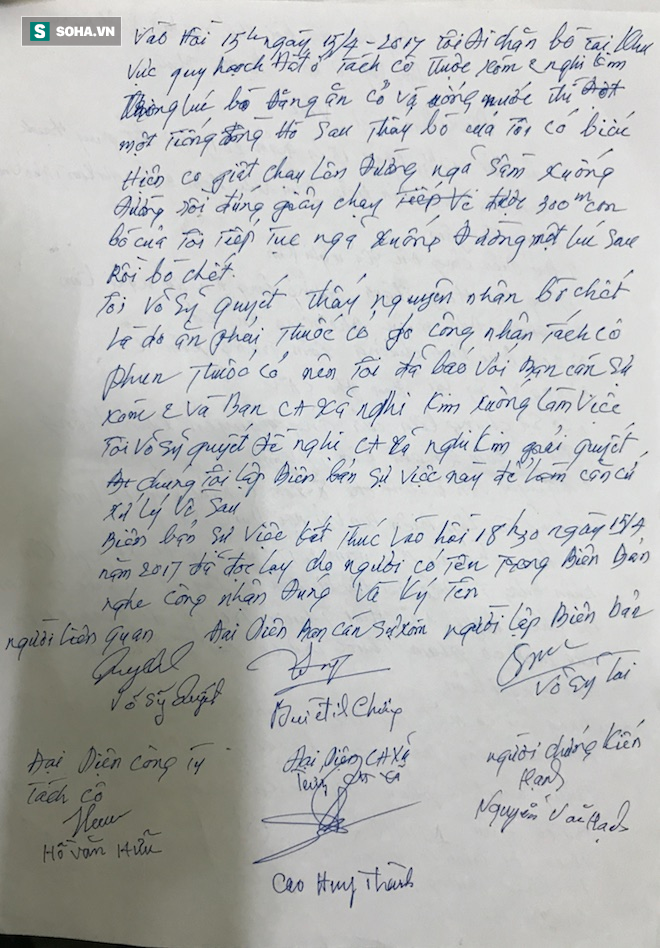 SOHA.VN
Vào Hồi 15h ngày 15/4-2017 Tôi Đi chăn bò tại khu
vực quy hoạch Đất ở Tách cô thuộc xóm 2 nghi kim
Trong lúc bò Đang ăn cỏ và uống nước thì Đột
một Tiếng đồng Hồ Sau Thấy bò của Tôi có biểu
Hiện co giật chạy Lên Đường ngã Sầm xuống
Đường rồi đứng giậy chạy Tiếp Về được 300m con
bò của Tôi Tiếp Tục ngã xuống Đường một lúc sau
Rồi bò chết.
Tôi Võ Sỹ quyết thấy nguyên nhân bò chết
Là do ăn phải Thuốc cỏ do công nhân Tách cô
phun Thuốc cỏ nên Tôi đã báo Với Ban cán Sự
xóm 2 Và Ban CA Xã nghi Kim xuống Làm Việc
Tôi Võ Sỹ quyết đề nghị CA Xã nghi Kim giải quyết
chung Tôi Lập Biên bản Sự việc này để Làm căn cứ
xử lý Về Sau
Biên bản Sự Việc kết Thúc vào hồi 18h30 ngày 15/4
năm 2017 đã đọc lại cho người có Tên Trong Biên Bản
nghe công nhận Đúng Và Ký Tên
người Liên quan Đại Diện Ban Cán Sự xóm người Lập Biên bản
Võ Sỹ Quyết Võ Sỹ Tai
Đại Diện Công Ty Đại Diện CA Xã người chứng Kiến
Tách Cô
Hồ Văn Hữu Nguyễn Văn Hạnh
Cao Huy Thành